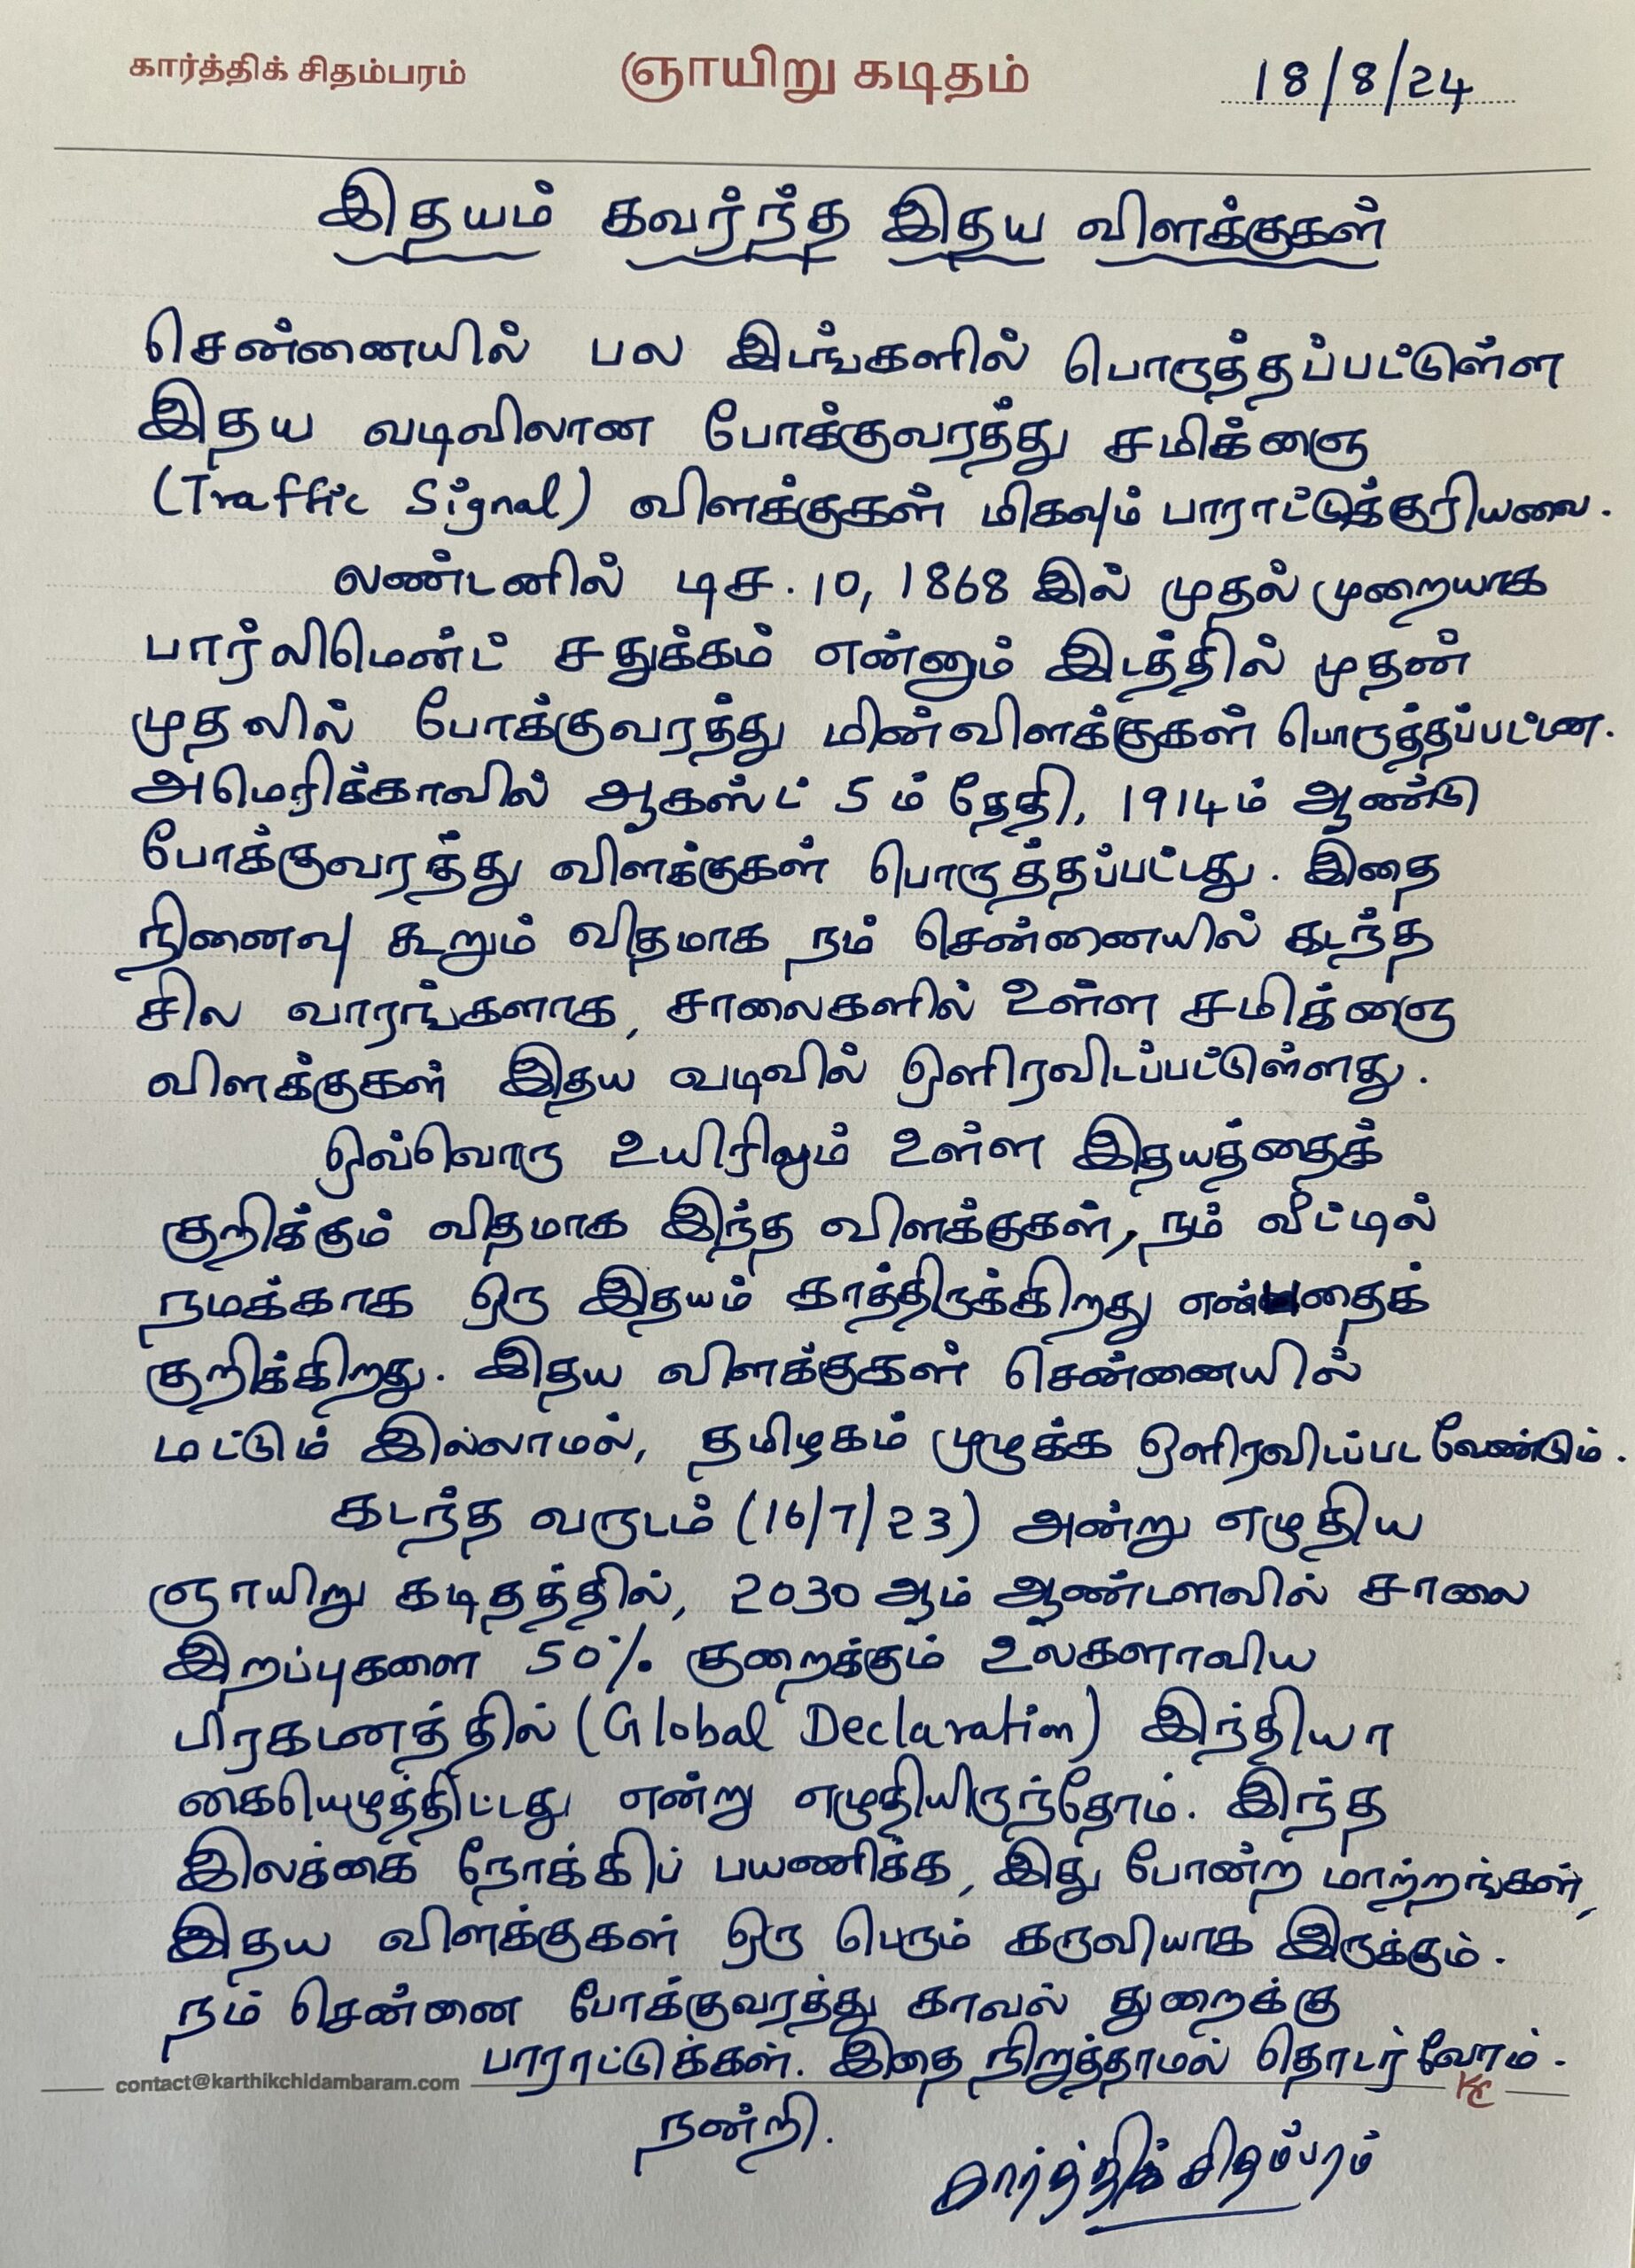 கார்த்திக் சிதம்பரம் ஞாயிறு கடிதம் 18/8/24
இதயம் கவர்ந்த இதய விளக்குகள்
சென்னையில் பல இடங்களில் பொருத்தப்பட்டுள்ள
இதய வடிவிலான போக்குவரத்து சமிக்ஞை
(Traffic Signal) விளக்குகள் மிகவும் பாராட்டுக்குரியவை.
லண்டனில் டிச. 10, 1868 இல் முதல் முறையாக
பார்லிமெண்ட் சதுக்கம் என்னும் இடத்தில் முதன்
முதலில் போக்குவரத்து மின்விளக்குகள் பொருத்தப்பட்டன.
அமெரிக்காவில் ஆகஸ்ட் 5 ம் தேதி, 1914ம் ஆண்டு
போக்குவரத்து விளக்குகள் பொருத்தப்பட்டது. இதை
நினைவு கூறும் விதமாக நம் சென்னையில் கடந்த
சில வாரங்களாக, சாலைகளில் உள்ள சமிக்ஞை
விளக்குகள் இதய வடிவில் ஒளிரவிடப்பட்டுள்ளது.
ஒவ்வொரு உயிரிலும் உள்ள இதயத்தைக்
குறிக்கும் விதமாக இந்த விளக்குகள், நம் வீட்டில்
நமக்காக ஒரு இதயம் காத்திருக்கிறது என்பதைக்
குறிக்கிறது. இதய விளக்குகள் சென்னையில்
மட்டும் இல்லாமல், தமிழகம் முழுக்க ஒளிரவிடப்பட வேண்டும்.
கடந்த வருடம் (16/7/23) அன்று எழுதிய
ஞாயிறு கடிதத்தில், 2030 ஆம் ஆண்டளவில் சாலை
இறப்புகளை 50% குறைக்கும் உலகளாவிய
பிரகடனத்தில் (Global Declaration) இந்தியா
கையெழுத்திட்டது என்று எழுதியிருந்தோம். இந்த
இலக்கை நோக்கிப் பயணிக்க, இது போன்ற மாற்றங்கள்,
இதய விளக்குகள் ஒரு பெரும் கருவியாக இருக்கும்.
நம் சென்னை போக்குவரத்து காவல் துறைக்கு
பாராட்டுக்கள். இதை நிறுத்தாமல் தொடர்வோம்.
contact@karthikchidambaram.com KC
நன்றி.
கார்த்திக் சிதம்பரம்